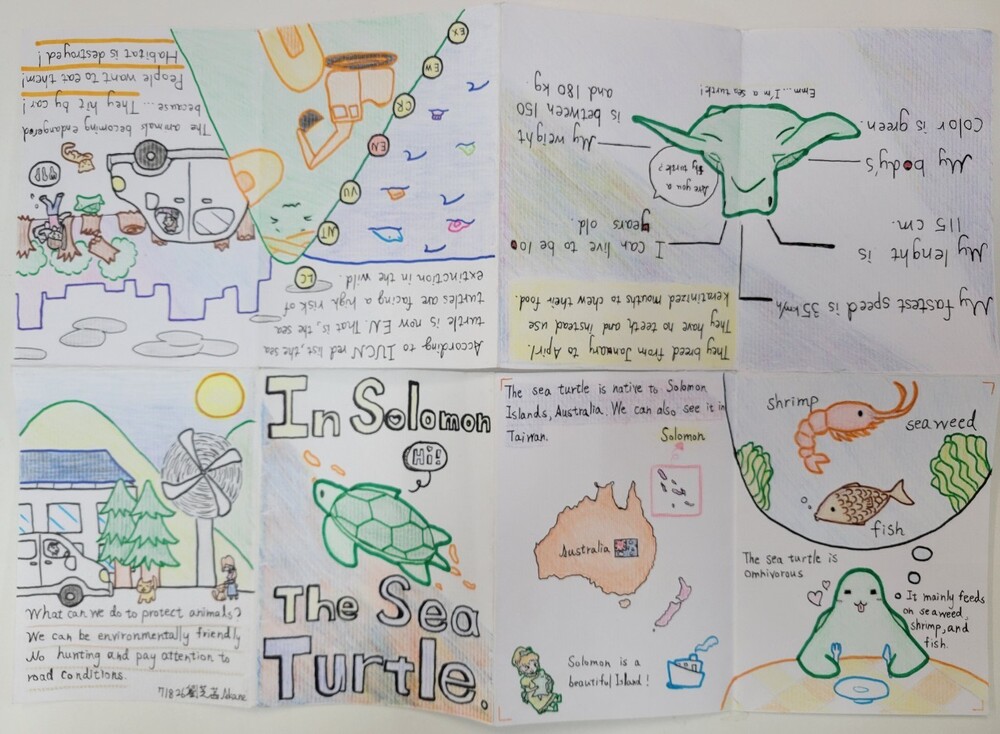 In Solomon
Hi!
The Sea
Turtle.
The sea turtle is native to Solomon
Islands, Australia. We can also see it in
Taiwan.
Solomon
Australia
Solomon is a
beautiful Island!
shrimp
seaweed
fish
The sea turtle is
omnivorous
It mainly feeds
on seaweed,
shrimp, and
fish.
My fastest speed is 35 km/h
They breed from January to Apirl.
They have no teeth, and instead use
keratinized mouths to chew their food.
My lenght is
115 cm.
I can live to be 100
years old.
My body's
color is green.
Are you a
turtle?
My weight
is between 150
and 180 kg.
Emm... I'm a sea turtle!
According to IUCN red list, the sea
turtle is now EN. That is, the sea
turtles are facing a high risk of
extinction in the wild.
LC
NT
VU
EN
CR
EW
EX
The animals becoming endangered
because... They hit by car!
People want to eat them!
Habitat is destroyed!
What can we do to protect animals?
We can be environmentally friendly
No hunting and pay attention to
road conditions.
71826